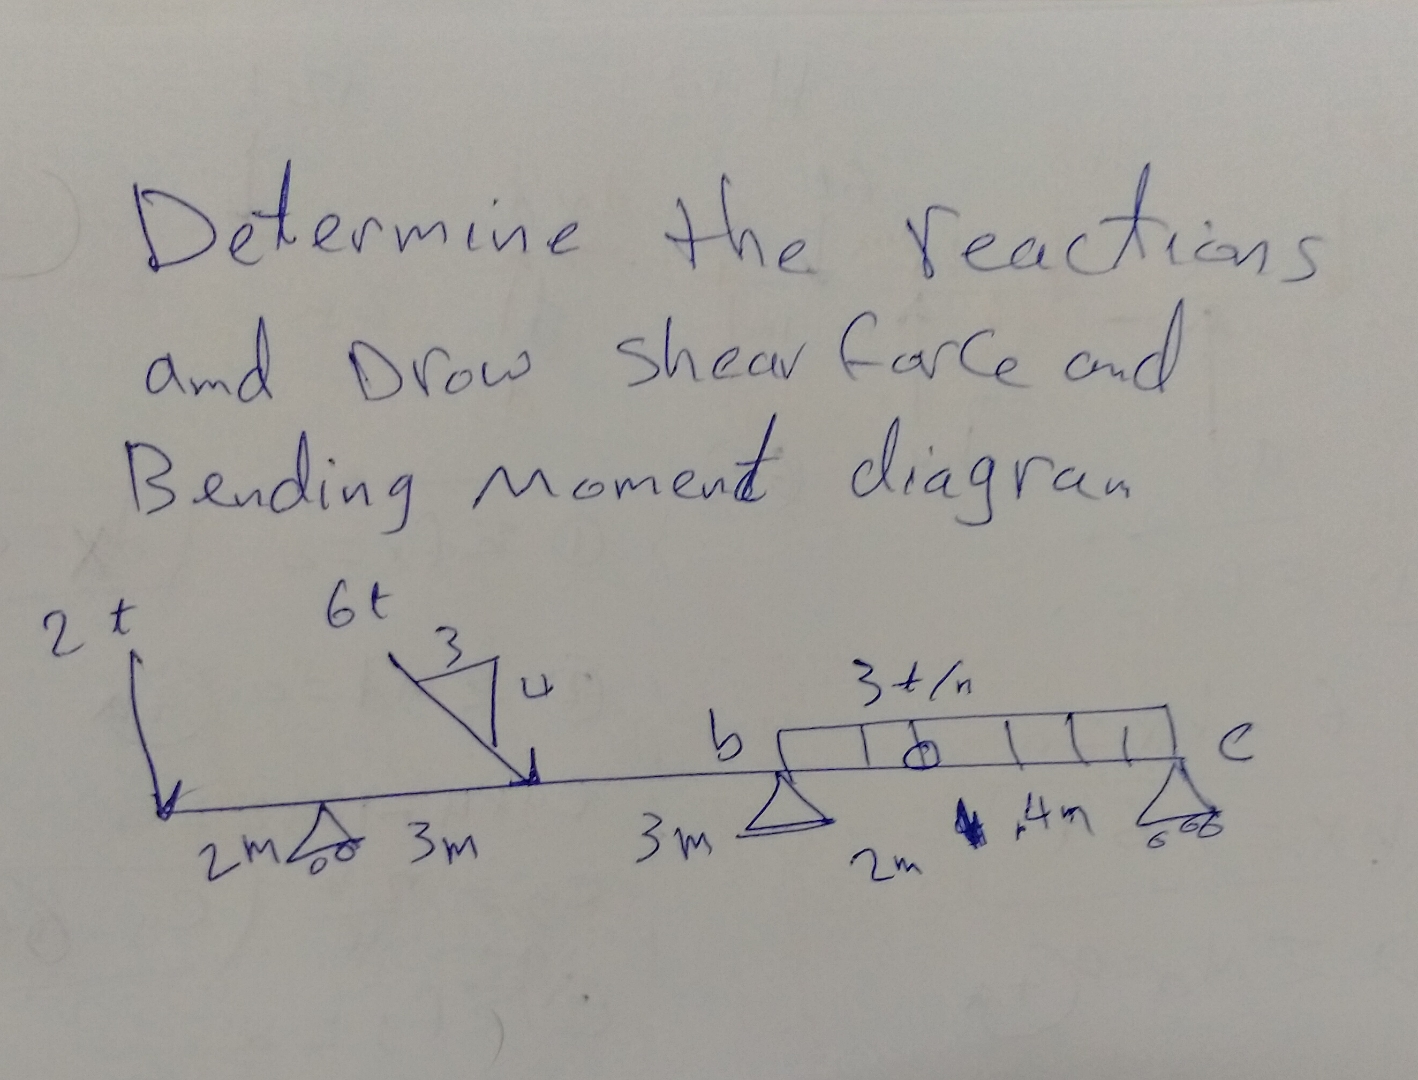 Determine the reactions
and Drow shear force and
Bending Moment diagram
2 t
6t
3
4
3 t/m
b
c
2m
3m
3m
2m
4m